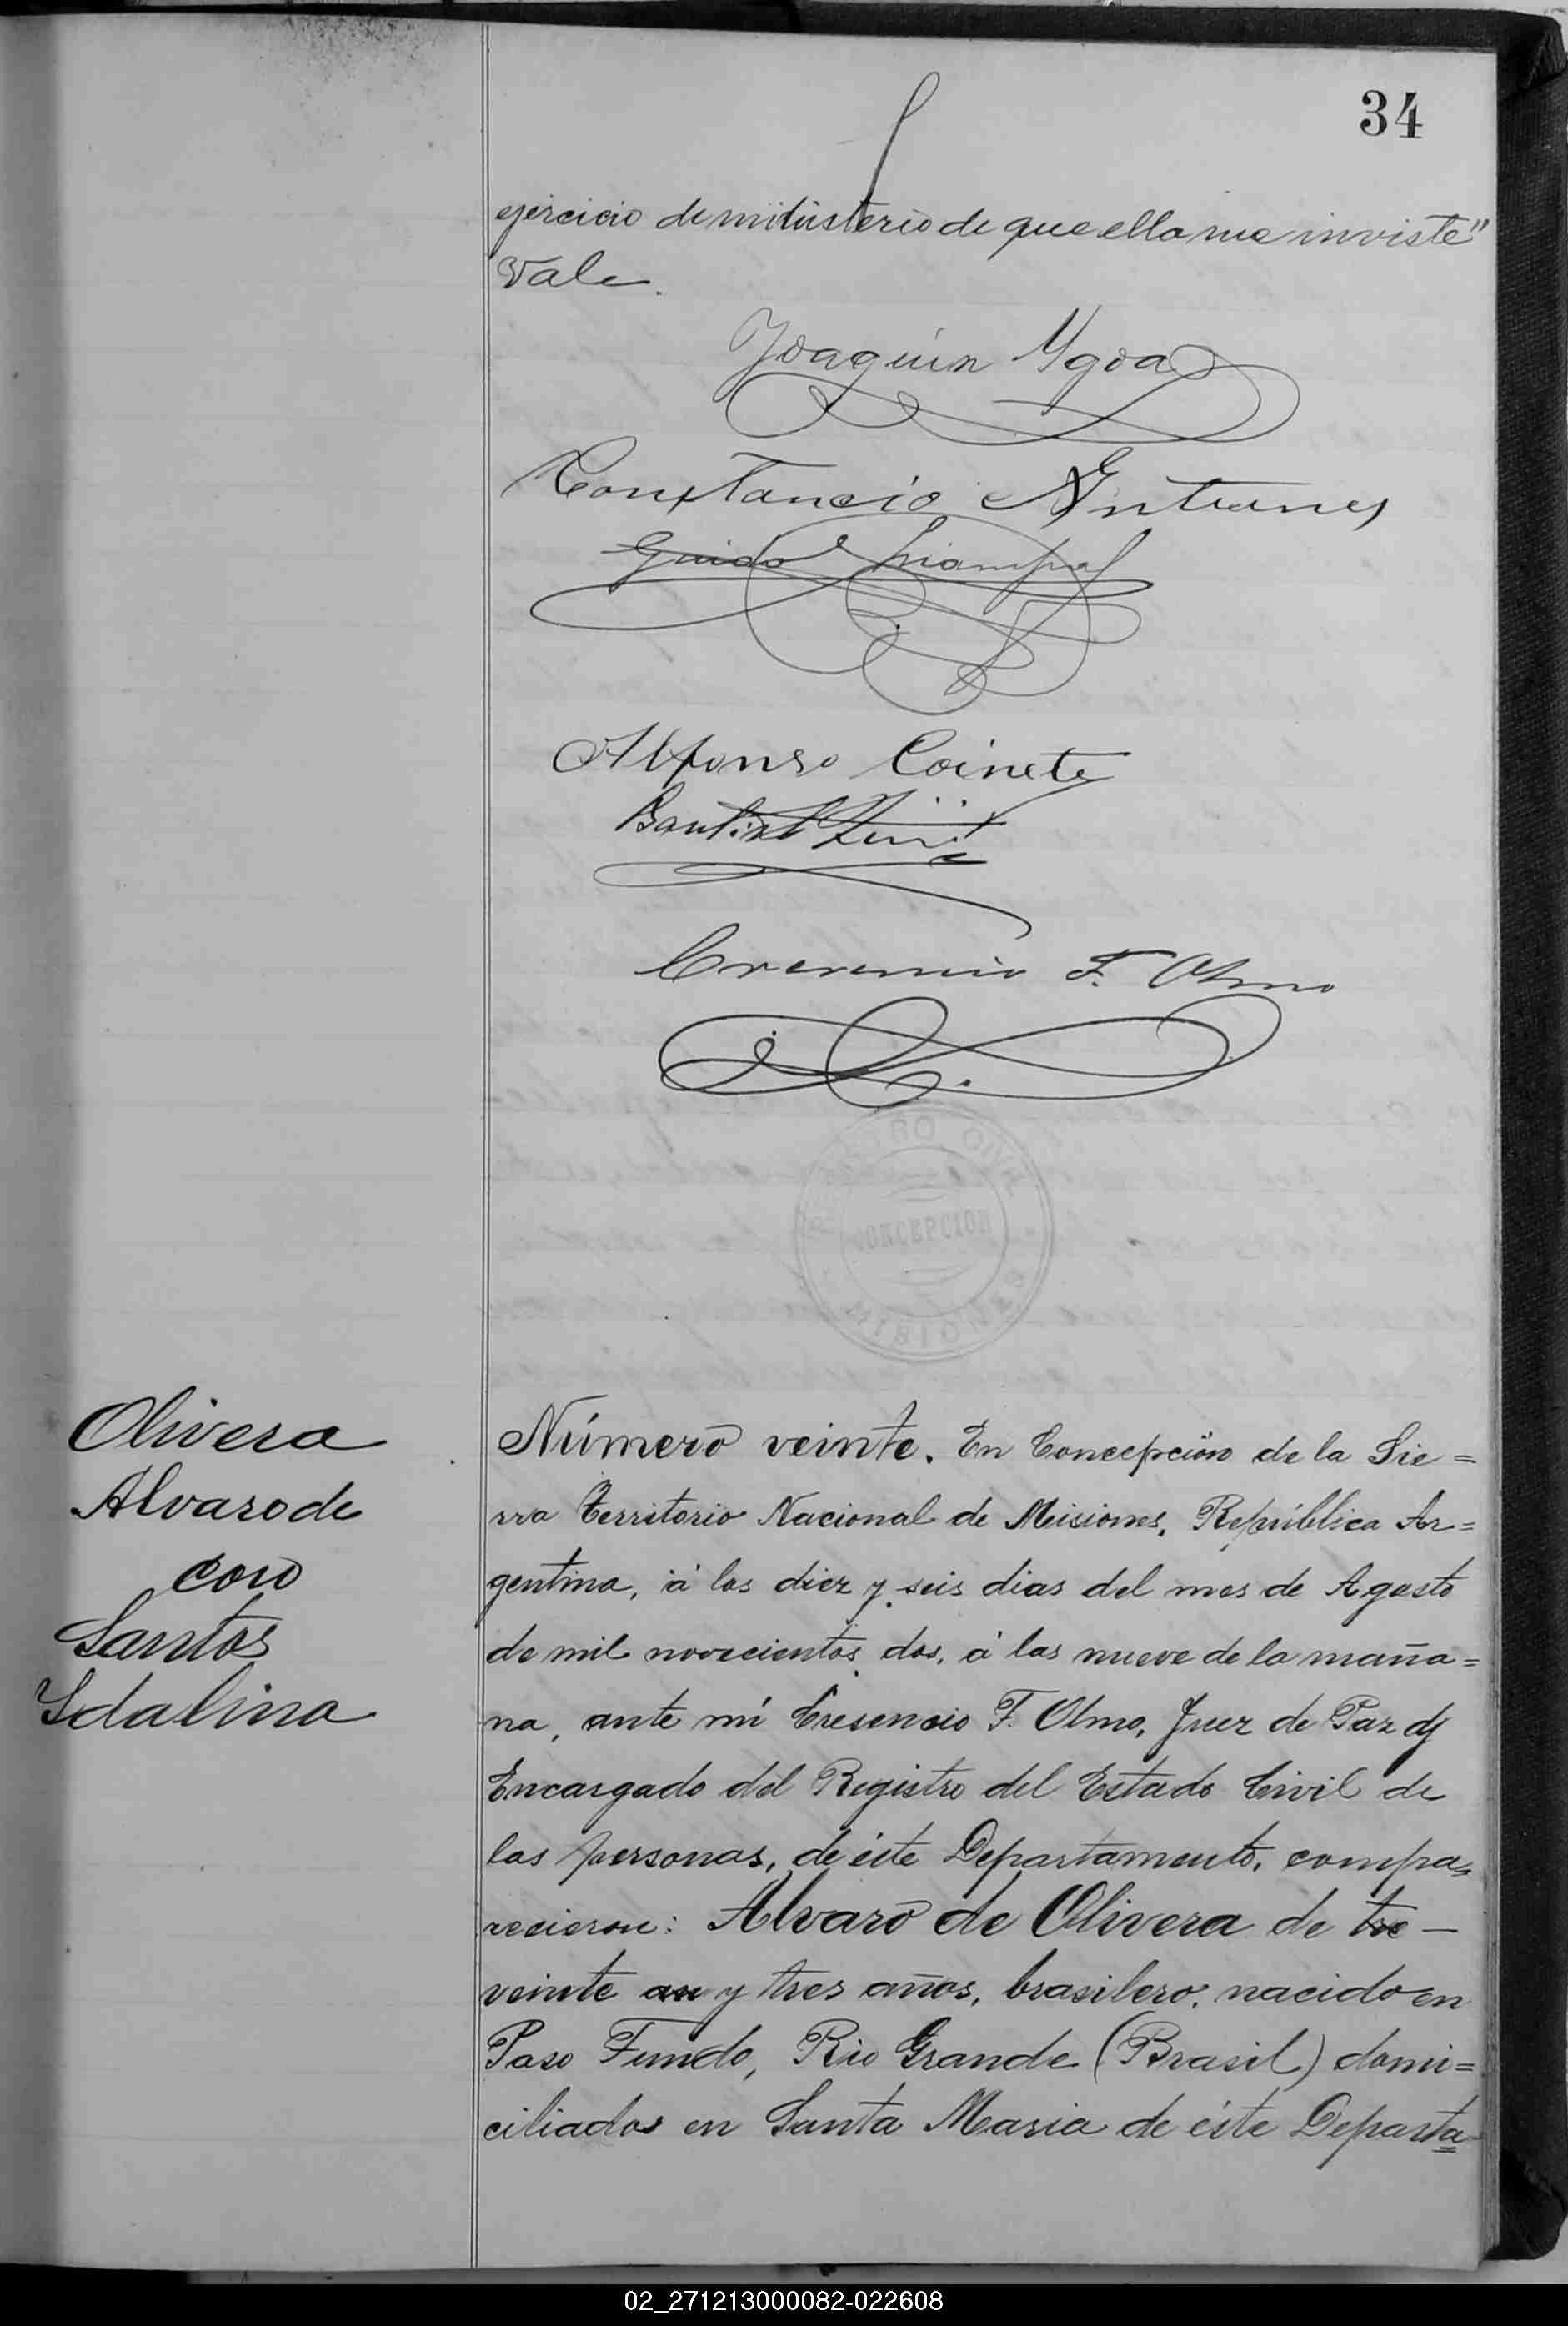 34
ejercicio de ministerio de que ella me inviste"
Vale.
Joaquin Ygoa
Constancio Antunes
Guido
Alfonso Coinete
Bautista
Cresencio F. Olmo
REGISTRO CIVIL
CONCEPCION
MISIONES
Olivera
Alvaro de
con
Santos
Idalina
Número veinte. En Concepción de la Sie=
rra Territorio Nacional de Misiones, República Ar=
gentina, á los diez y seis dias del mes de Agosto
de mil novecientos dos, á las nueve de la maña=
na, ante mí Cresencio F. Olmo, Juez de Paz y
Encargado del Registro del Estado Civil de
las personas, de éste Departamento, compa=
recieron: Alvaro de Olivera de tre—
veinte an y tres años, brasilero, nacido en
Paso Fundo, Rio Grande (Brasil) domi=
ciliados en Santa Maria de éste Departa=
02_271213000082-022608